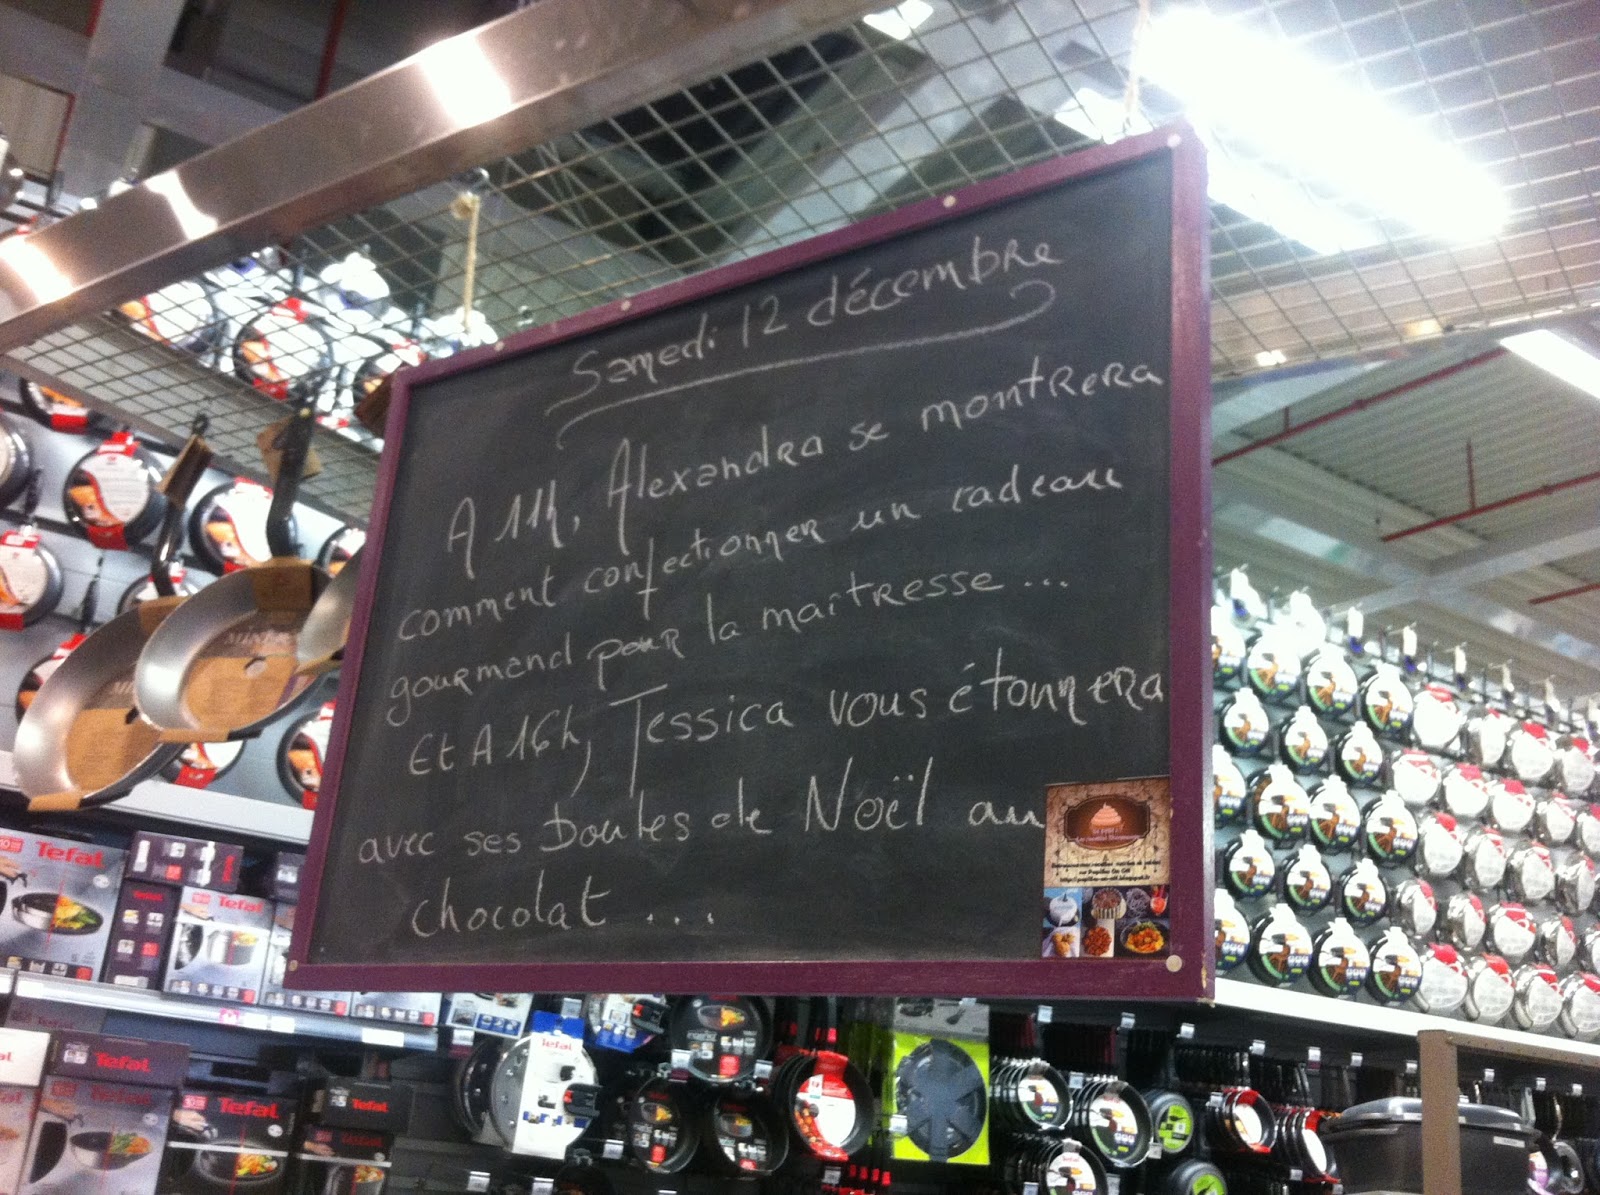 Samedi 12 décembre
A 11h, Alexandra se montrera
comment confectionner un cadeau
gourmand pour la maîtresse ...
Et A 16h, Jessica vous étonnera
avec ses Boules de Noël au
chocolat ...
Tefal
Tefal
Tefal
Tefal
Tefal
Tefal